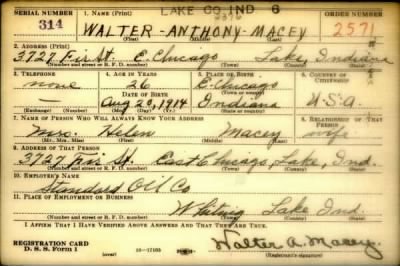 SERIAL NUMBER 1. NAME (Print) LAKE CO. IND 6 ORDER NUMBER
314 WALTER - ANTHONY - MACEY 2571
(First) (Middle) (Last)
2. ADDRESS (Print)
3727 Fir St. E. Chicago Lake, Indiana
(Number and street or R. F. D. number) (Town) (County) (State)
3. TELEPHONE 4. AGE IN YEARS 5. PLACE OF BIRTH 6. COUNTRY OF CITIZENSHIP
none 26 E. Chicago
DATE OF BIRTH
Aug 20, 1914 Indiana U.S.A.
(Exchange) (Number) (Mo.) (Day) (Yr.) (State or country)
7. NAME OF PERSON WHO WILL ALWAYS KNOW YOUR ADDRESS 8. RELATIONSHIP OF THAT PERSON
Mrs. Helen Macey wife
(Mr., Mrs., Miss) (First) (Middle) (Last)
9. ADDRESS OF THAT PERSON
3727 Fir St. East Chicago, Lake, Ind.
(Number and street or R. F. D. number) (Town) (County) (State)
10. EMPLOYER'S NAME
Standard Oil Co
11. PLACE OF EMPLOYMENT OR BUSINESS
Whiting Lake Ind.
(Number and street or R. F. D. number) (Town) (County) (State)
I AFFIRM THAT I HAVE VERIFIED ABOVE ANSWERS AND THAT THEY ARE TRUE.
REGISTRATION CARD
D. S. S. Form 1 16-17105 Walter A. Macey.
(Registrant's signature)